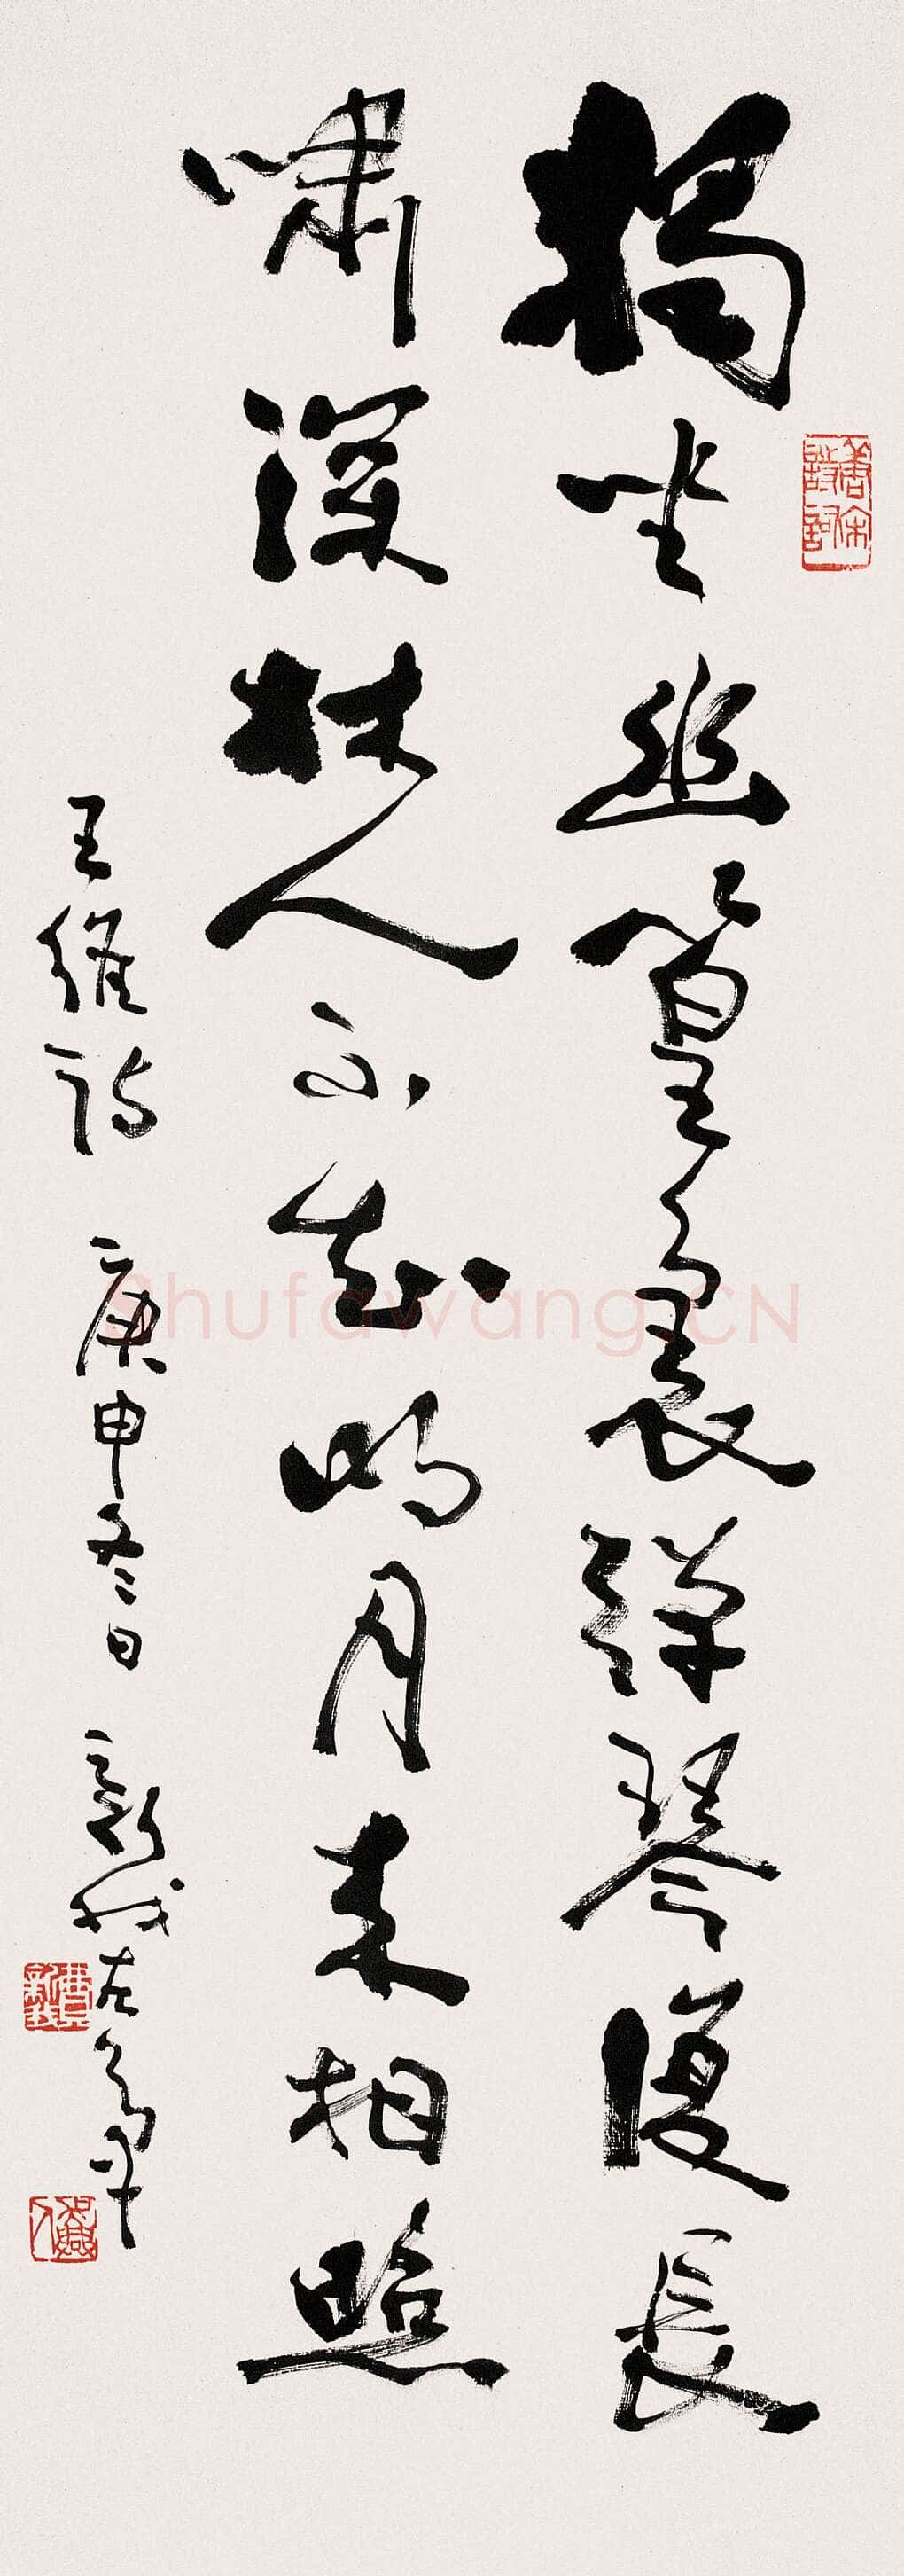 獨坐幽篁裏彈琴復長
嘯深林人不知明月來相照
王維詩 庚申冬日 新我左
唐宋詩詞
Shufawang.CN